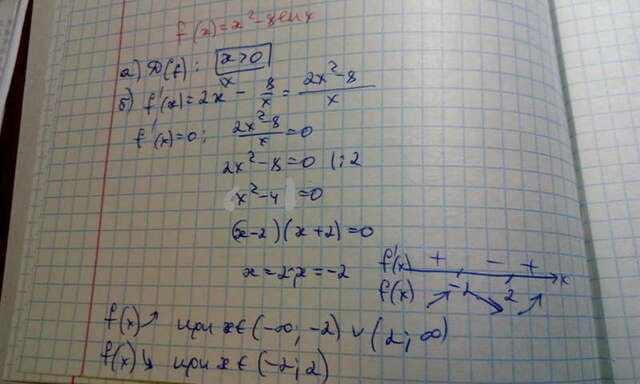 f(x)=x²-8lnx
а) D(f): x>0
x
б) f'(x)=2x - 8/x = 2x²-8/x
f'(x)=0; 2x²-8/x=0
2x²-8=0 |:2
x²-4=0
(x-2)(x+2)=0
x=2; x=-2
f'(x) + - + x
f(x) ↗ -2 ↘ 2 ↗
f(x)↗ при x∈(-∞; -2) ∪ (2; ∞)
f(x)↘ при x∈(-2; 2)